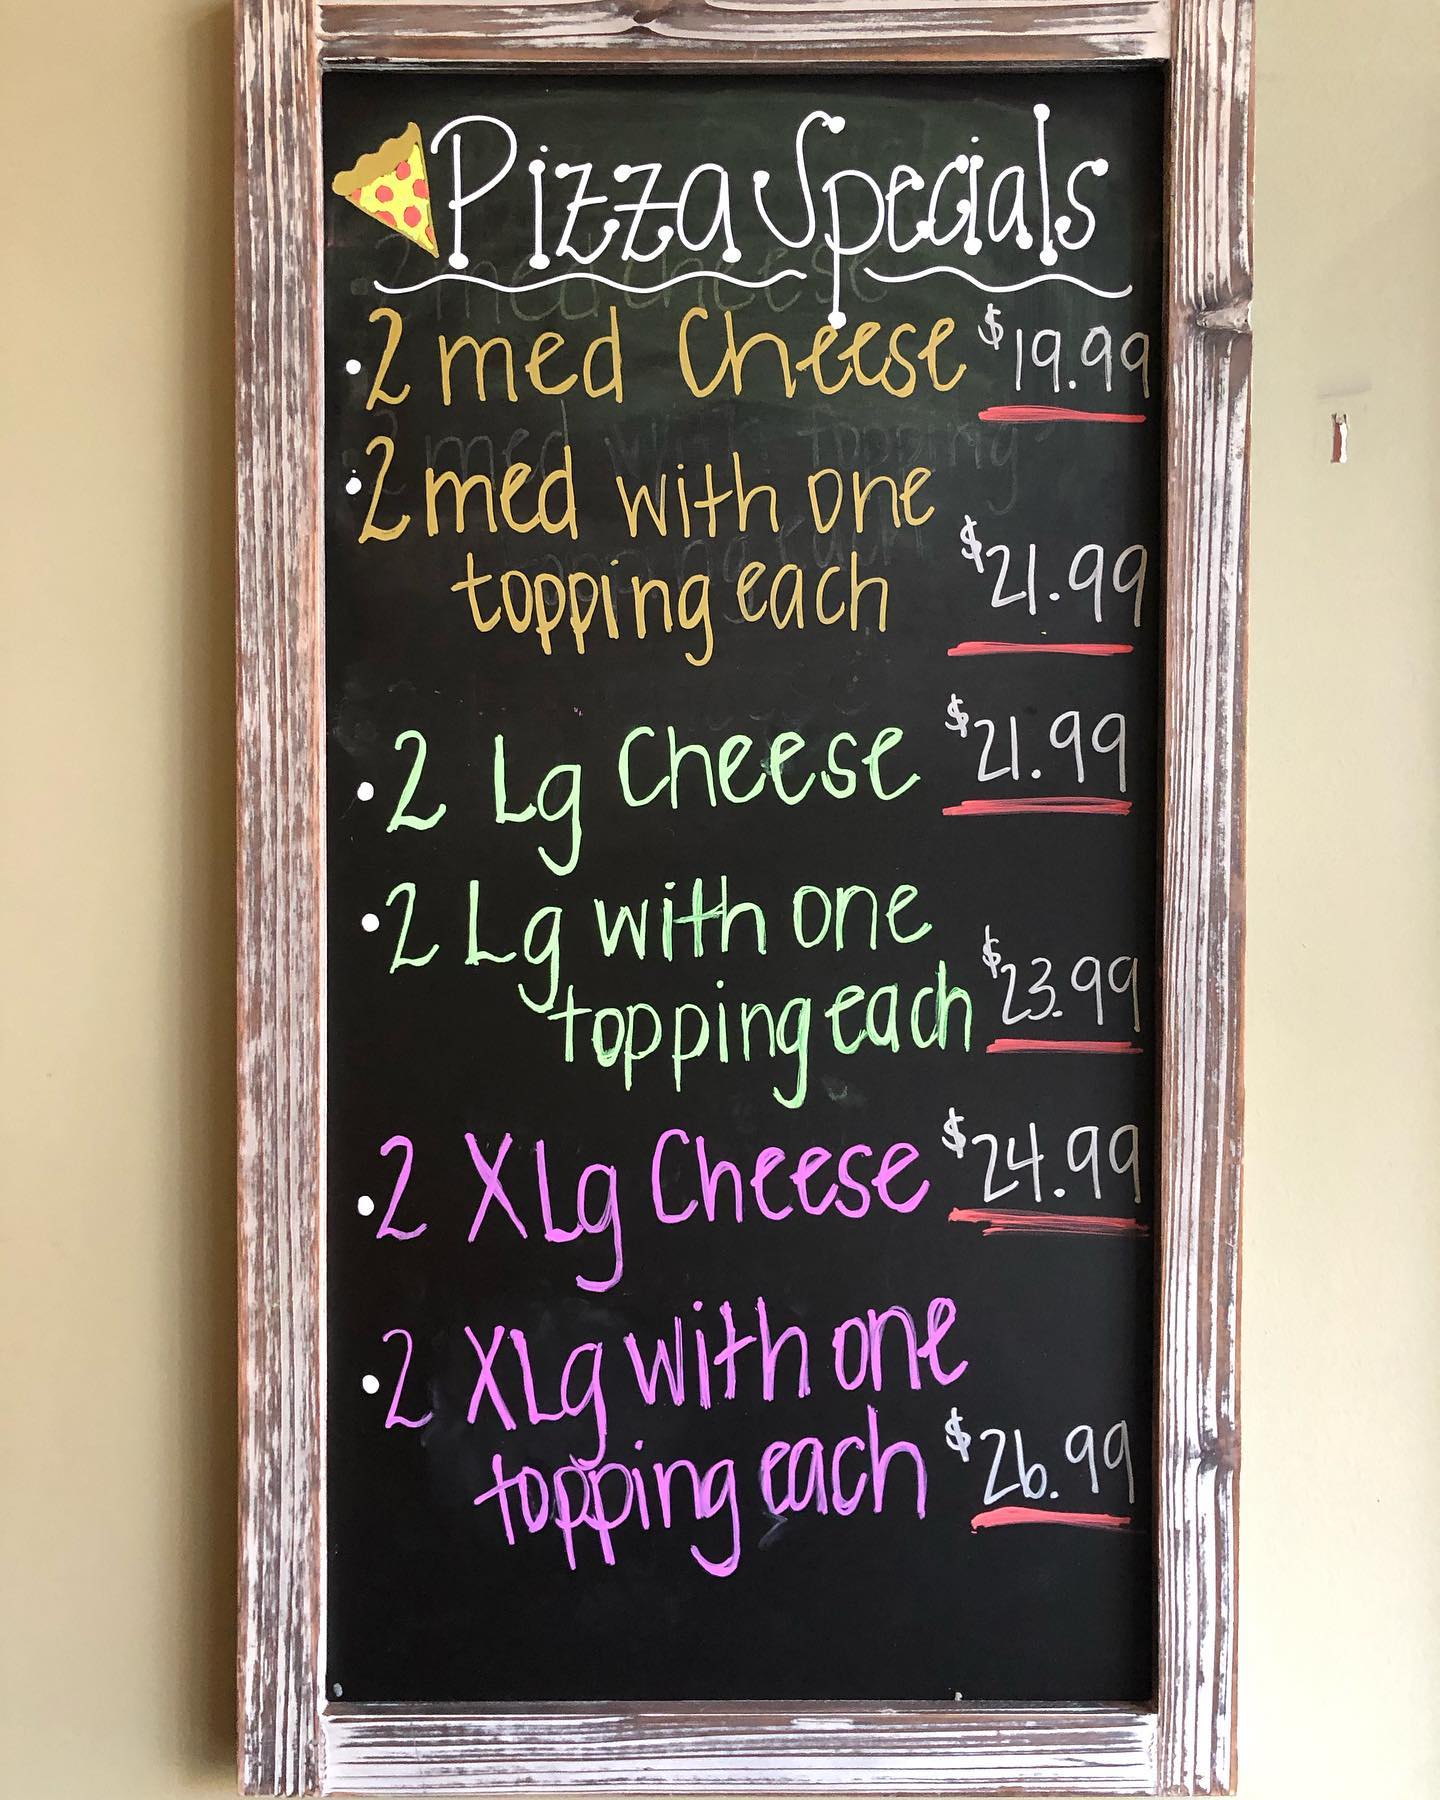 Pizza Specials
• 2 med Cheese $19.99
• 2 med with one
topping each $21.99
• 2 Lg Cheese $21.99
• 2 Lg with one
topping each $23.99
• 2 XLg Cheese $24.99
• 2 XLg with one
topping each $26.99